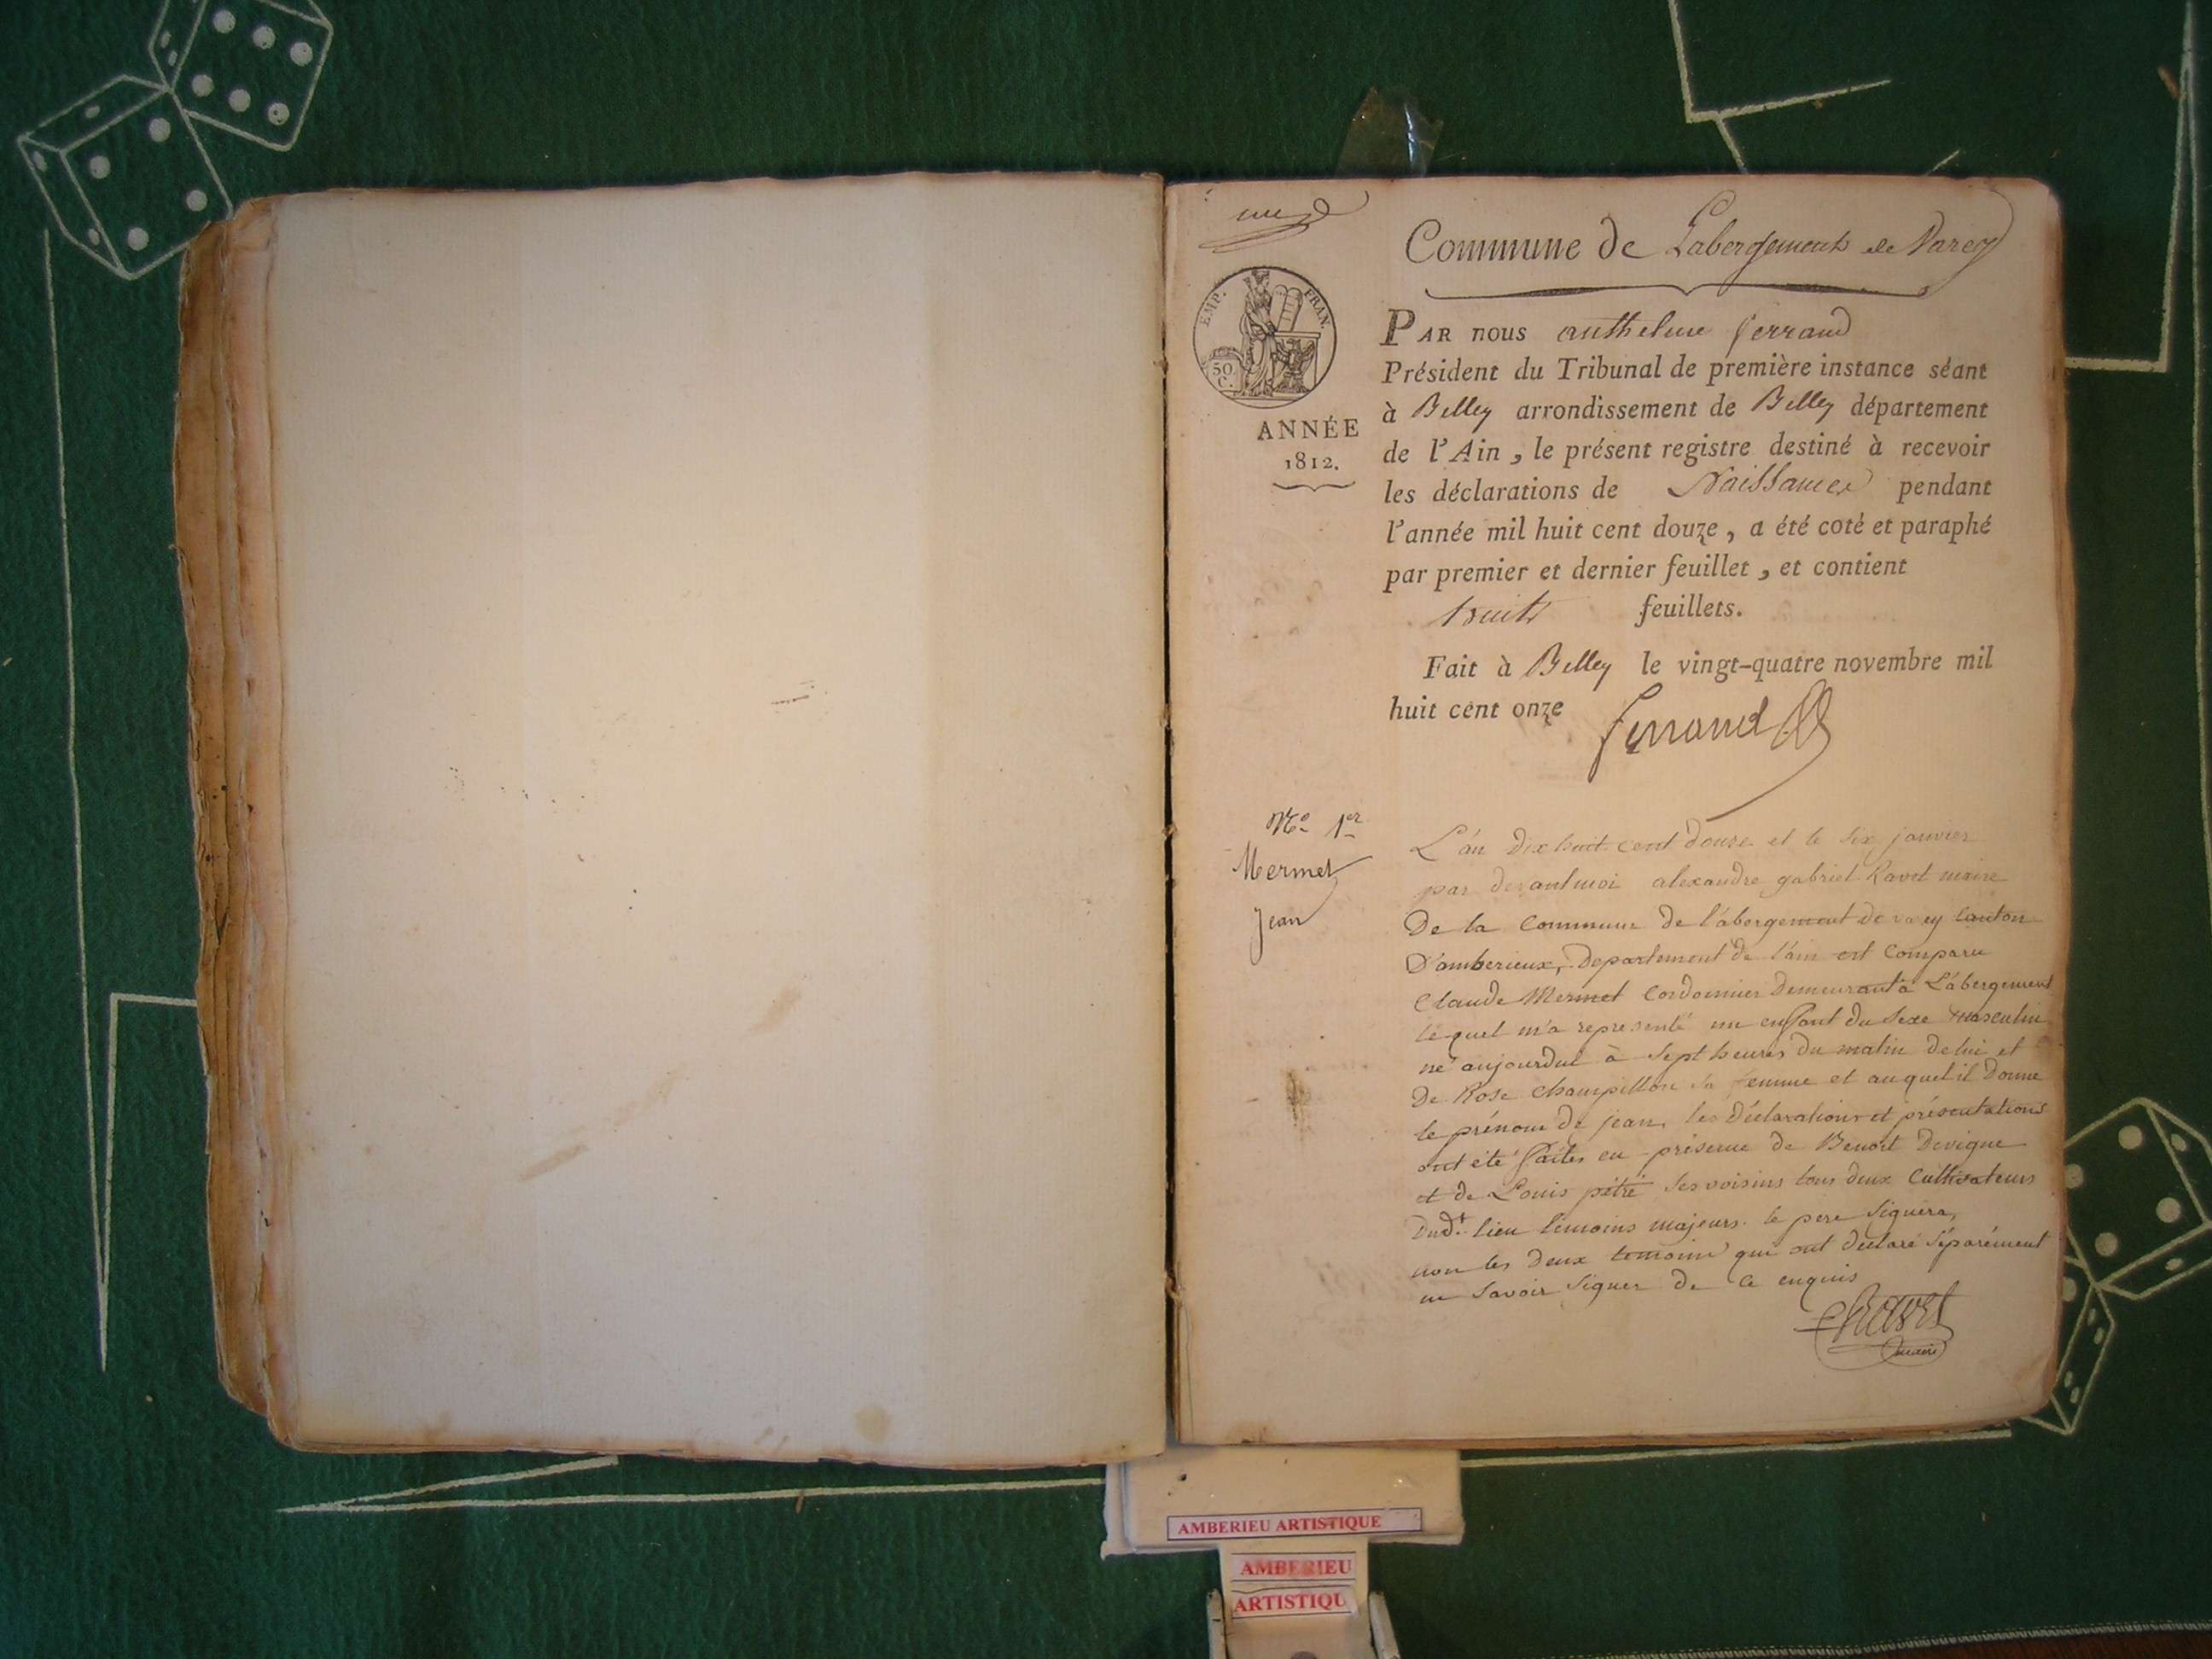 Commune de Labergement de Varey
EMP. FRAN.
50 C.
ANNÉE
1812.
PAR nous anthelme ferrand
Président du Tribunal de première instance séant
à Belley arrondissement de Belley département
de l'Ain, le présent registre destiné à recevoir
les déclarations de Naissances pendant
l'année mil huit cent douze, a été coté et paraphé
par premier et dernier feuillet, et contient
huit feuillets.
Fait à Belley le vingt-quatre novembre mil
huit cent onze
ferrand
No 1er
Mermet
Jean
L'án dix huit cent douze et le six janvier
par devant moi alexandre gabriel Ravet maire
De la Commune de l'abergement de varey Canton
D'amberieux, Departement de l'ain est Comparu
Claude Mermet Cordonnier Demeurant à L'abergement
lequel m'a representé un enfant du Sexe masculin
né aujourdui à Sept heures du matin de lui et
De Rose Champillon sa femme et auquel il Donne
le prénom de jean, les Déclarations et présentations
ont été faites en présence de Benoit Devigne
et de Louis pétré ses voisins tous deux Cultivateurs
Dud.t lieu témoins majeurs. le pere Signera,
non les deux temoins qui ont declaré Séparément
ne Savoir Signer de Ce enquis
Ravet
maire
AMBERIEU ARTISTIQUE
AMBERIEU
ARTISTIQU